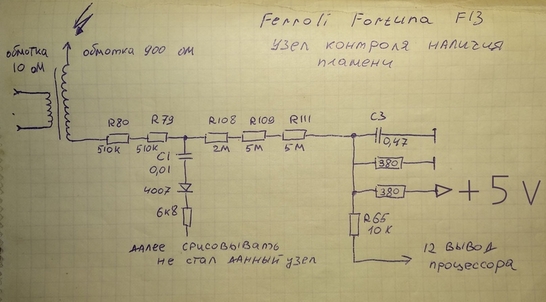 Ferroli Fortuna F13
узел контроля наличия
пламени
обмотка
10 ом
обмотка 900 ом
R80
510К
R79
510К
R108
2М
R109
5М
R111
5М
C3
0,47
C1
0,01
4007
6к8
380
380
+5V
R65
10К
далее срисовывать
не стал данный узел
12 вывод
процессора